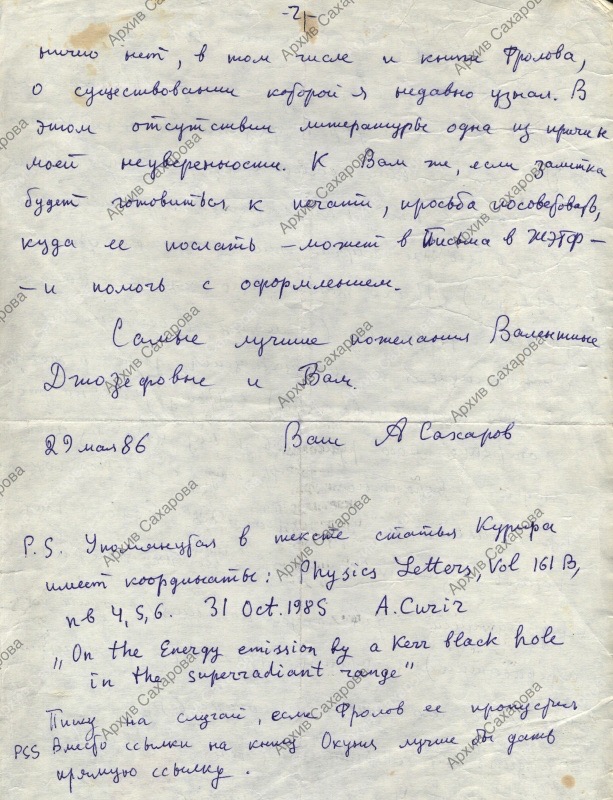 -2-
ничего нет, в том числе и книги Фролова,
о существовании которой я недавно узнал. В
этом отсутствии литературы одна из причин
моей неуверенности. К Вам же, если заметка
будет готовиться к печати, просьба посоветовать,
куда ее послать – может в Письма в ЖЭТФ –
– и помочь с оформлением.
Самые лучшие пожелания Валентине
Джозефовне и Вам.
29 мая 86 Ваш А Сахаров
P.S. Упомянутая в тексте статья Курира
имеет координаты: Physics Letters, Vol 161 B,
n в 4, 5, 6. 31 Oct. 1985 A. Curir
„On the Energy emission by a Kerr black hole
in the superradiant range"
Пишу на случай, если Фролов ее пропустил
PSS Вместо ссылки на книгу Окуня лучше бы дать
прямую ссылку.
Архив Сахарова